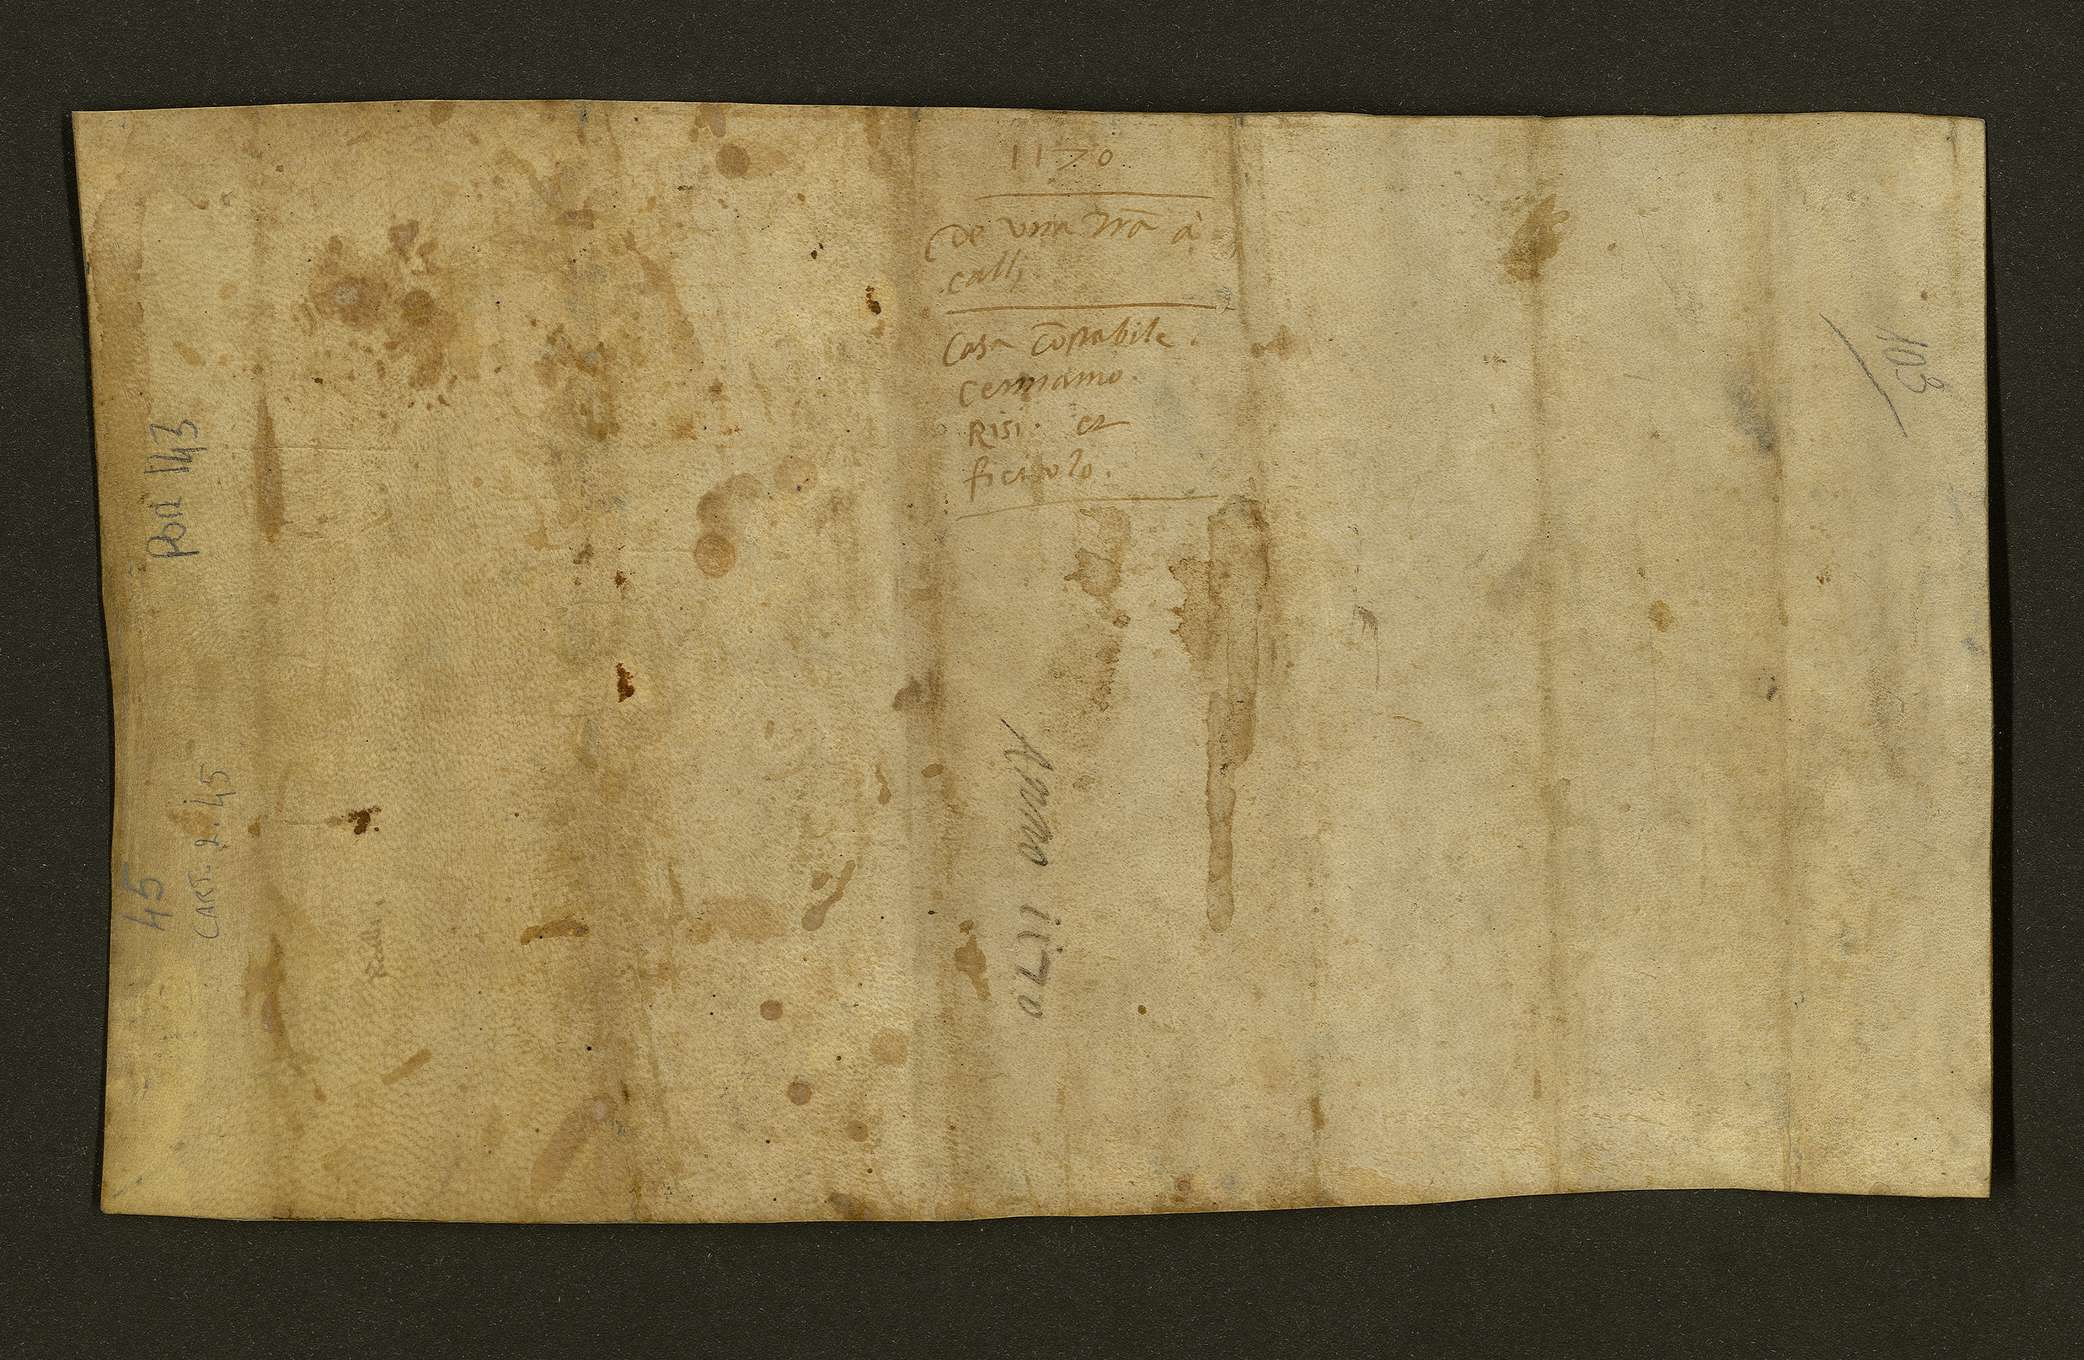 1170
De una Trā à
calli
Casa cōstabile.
cennamo.
Risi. et
ficitolo.
Anno 1170
103
Pou 143
45
CART. 2. 45